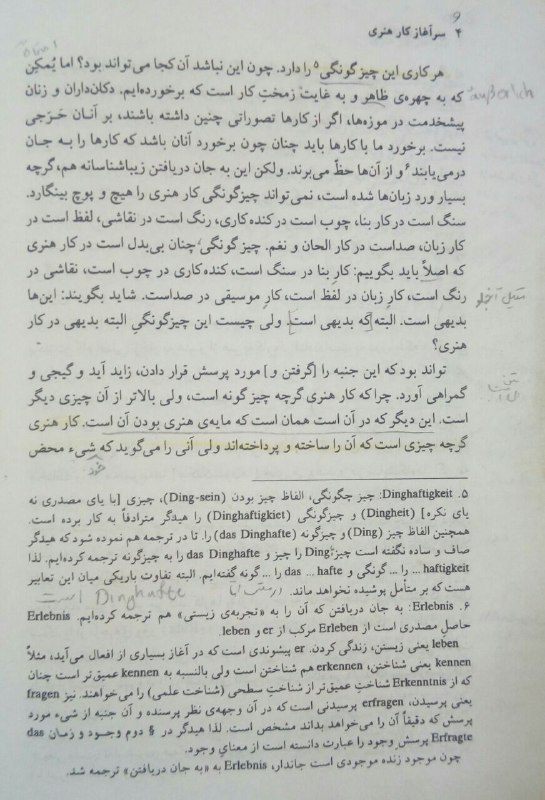 ۴ سرآغاز کار هنری
هر کاری این چیزگونگی۵ را دارد. چون این نباشد آن کجا می‌تواند بود؟ اما یُمکِن
که به چهره‌ی ظاهر و به غایت زمختِ کار است که برخورده‌ایم. دکان‌داران و زنان
پیشخدمت در موزه‌ها، اگر از کارها تصوراتی چنین داشته باشند، بر آنان خَرَجی
نیست. برخورد ما با کارها باید چنان چون برخورد آنان باشد که کارها را به جان
درمی‌یابند۶ و از آن‌ها حظّ می‌برند. ولکن این به جان دریافتن زیباشناسانه هم، گرچه
بسیار ورد زبان‌ها شده است، نمی‌تواند چیزگونگی کار هنری را هیچ و پوچ بینگارد.
سنگ است در کار بنا، چوب است در کنده کاری، رنگ است در نقاشی، لفظ است در
کار زبان، صداست در کار الحان و نغم. چیزگونگی چنان بی‌بدل است در کار هنری
که اصلاً باید بگوییم: کارِ بنا در سنگ است، کنده‌کاری در چوب است، نقاشی در
رنگ است، کارِ زبان در لفظ است، کارِ موسیقی در صداست. شاید بگویند: این‌ها
بدیهی است. البته [که بدیهی است]. ولی چیست این چیزگونگیِ البته بدیهی در کار
هنری؟
تواند بود که این جنبه را [گرفتن و] مورد پرسش قرار دادن، زاید آید و گیجی و
گمراهی آورد. چرا که کار هنری گرچه چیزگونه است، ولی بالاتر از آن چیزی دیگر
است. این دیگر که در آن است همان است که مایه‌ی هنری بودن آن است. کار هنری
گرچه چیزی است که آن را ساخته و پرداخته‌اند ولی آنی را می‌گوید که شیء محض
خود
۵. Dinghaftigkeit: چیز چگونگی، الفاظ چیز بودن (Ding-sein)، چیزی [با یای مصدری نه
یای نکره] (Dingheit) و چیزگونگی (Dinghaftigkiet) را هیدگر مترادفاً به کار برده است.
همچنین الفاظ چیز (Ding) و چیزگونه (das Dinghafte) را. تا در ترجمه هم نموده شود که هیدگر
صاف و ساده نگفته است چیز، Ding را چیز و das Dinghafte را به چیزگونه ترجمه کرده‌ایم. لذا
haftigkeit ... را ... گونگی و das ... hafte را ... گونه گفته‌ایم. البته تفاوت باریکی میان این تعابیر
هست که بر متأمل پوشیده نخواهد ماند.
das Dinghafte است
۶. Erlebnis: به جان دریافتن که آن را به «تجربه‌ی زیستی» هم ترجمه کرده‌ایم. Erlebnis
حاصلِ مصدری است از Erleben مرکب از er و leben.
leben یعنی زیستن، زندگی کردن. er پیشوندی است که در آغاز بسیاری از افعال می‌آید، مثلاً
kennen یعنی شناختن، erkennen هم شناختن است ولی بالنسبه به kennen عمیق‌تر است چنان
که از Erkenntnis شناختِ عمیق‌تر از شناختِ سطحی (شناخت علمی) را می‌خواهند. نیز fragen
یعنی پرسیدن، erfragen پرسیدنی است که در آن وجهه‌ی نظر پرسنده و آن جنبه از شیء مورد
پرسش که دقیقاً آن را می‌خواهد بداند مشخص است. لذا هیدگر در § دوم وجود و زمان das
Erfragte پرسشِ وجود را عبارت دانسته است از معنایِ وجود.
چون موجود زنده موجودی است جاندار، Erlebnis به «به جان دریافتن» ترجمه شد.